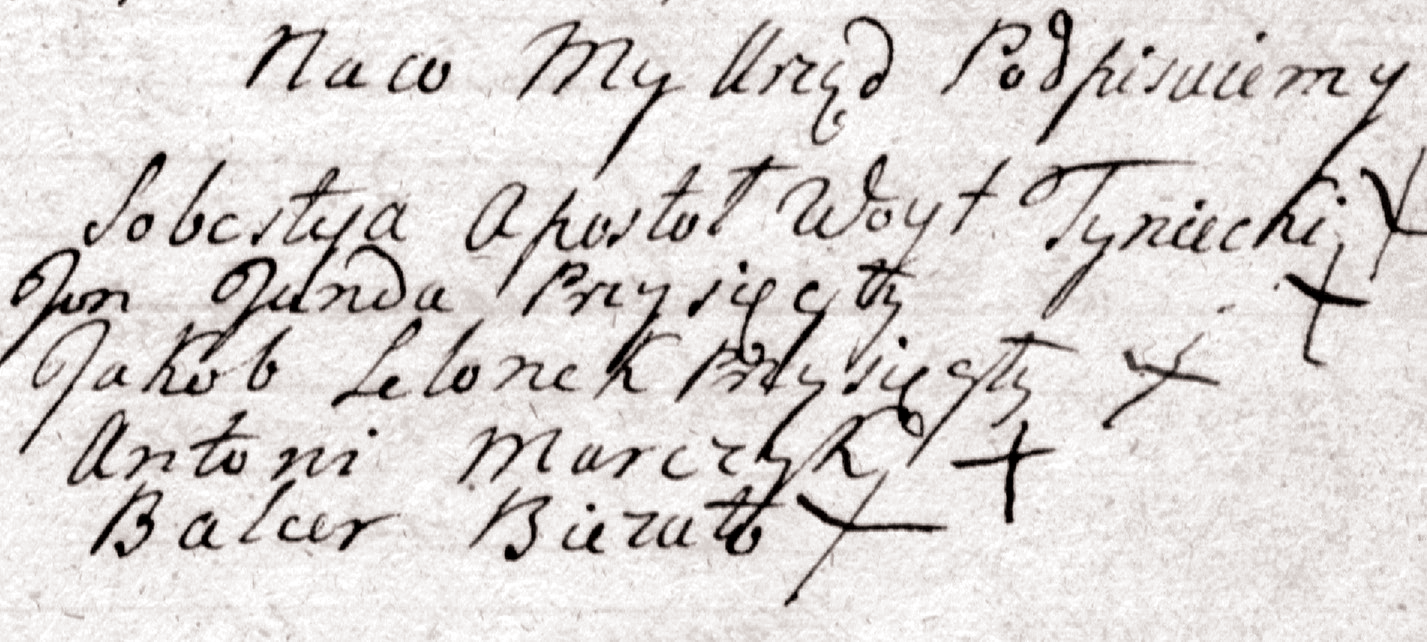 Naco My Urząd Podpisuiemy
Sobestya Apostoł Woyt Tyniecki
Jan Janda Przysięgły
Jakob Lelonek Przysięgły
Antoni Marczyk
Balcer Bieżało